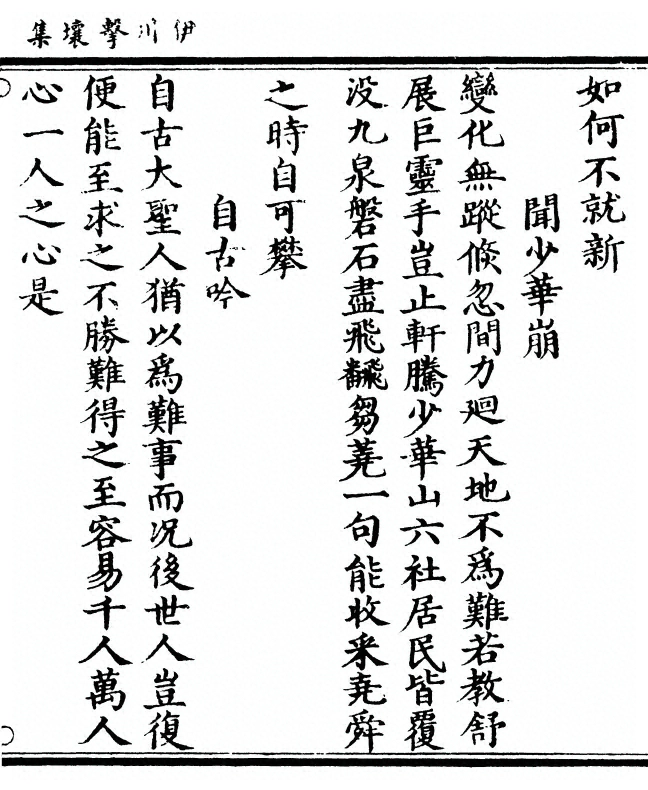 伊川擊壤集
如何不就新
聞少華崩
變化無蹤倏忽間力廻天地不爲難若教舒
展巨靈手豈止軒騰少華山六社居民皆覆
没九泉磐石盡飛飜芻蕘一句能收采堯舜
之時自可攀
自古吟
自古大聖人猶以爲難事而況後世人豈復
便能至求之不勝難得之至容易千人萬人
心一人之心是